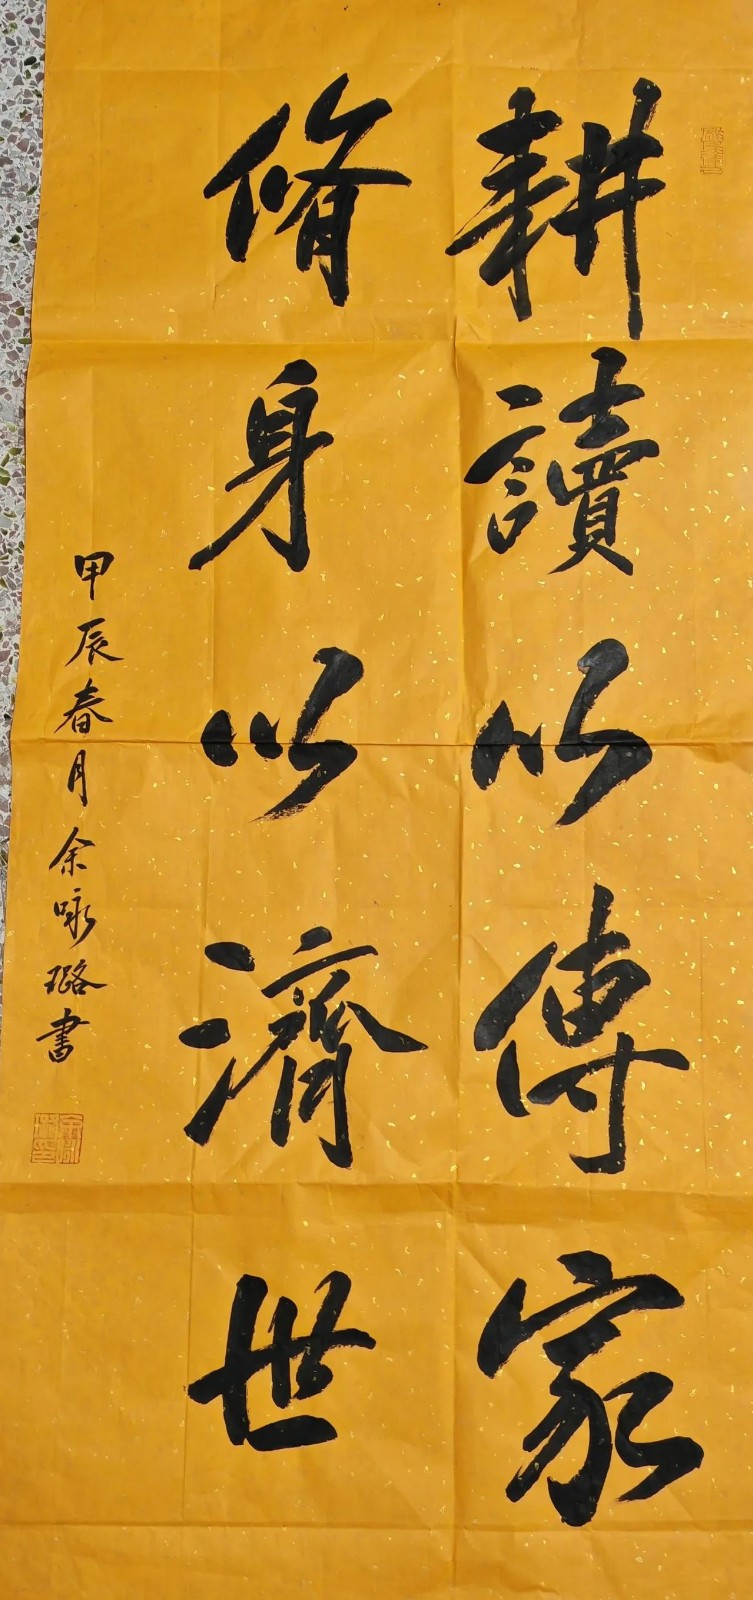 耕讀以傳家
脩身以濟世
甲辰春月余咏璐書